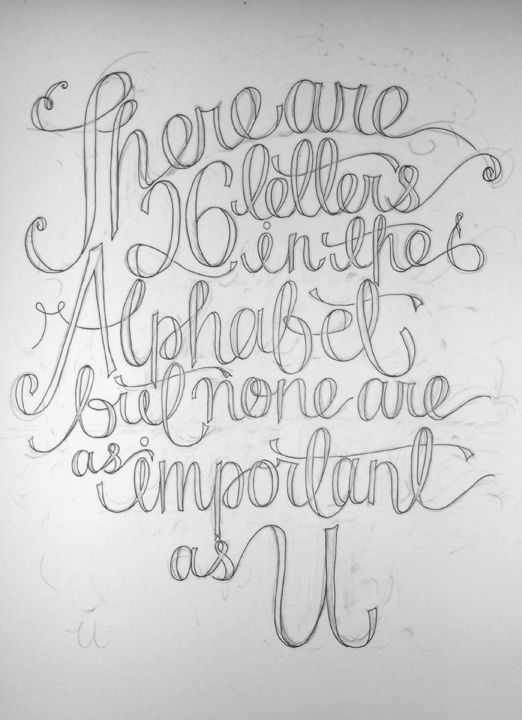 There are
26 letters
in the
Alphabet
but none are
as important
as U
u